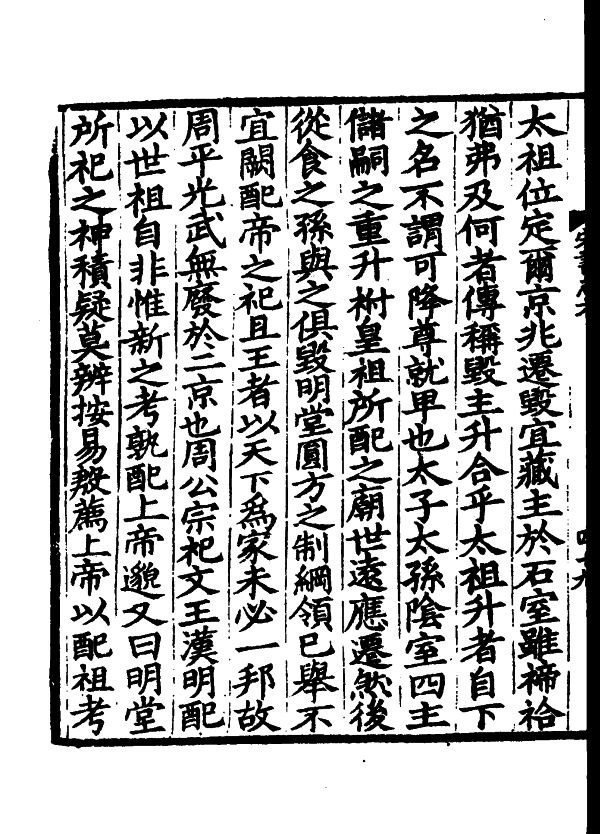 太祖位定爾京兆遷毀宜藏主於石室雖禘祫
猶弗及何者傳稱毀主升合乎太祖升者自下
之名不謂可降尊就卑也太子太孫陰室四主
儲嗣之重升祔皇祖所配之廟世遠應遷然後
從食之孫與之俱毀明堂圓方之制綱領已舉不
宜闕配帝之祀且王者以天下為家未必一邦故
周平光武無廢於二京也周公宗祀文王漢明配
以世祖自非惟新之考孰配上帝邈又曰明堂
所祀之神積疑莫辨按易殷薦上帝以配祖考